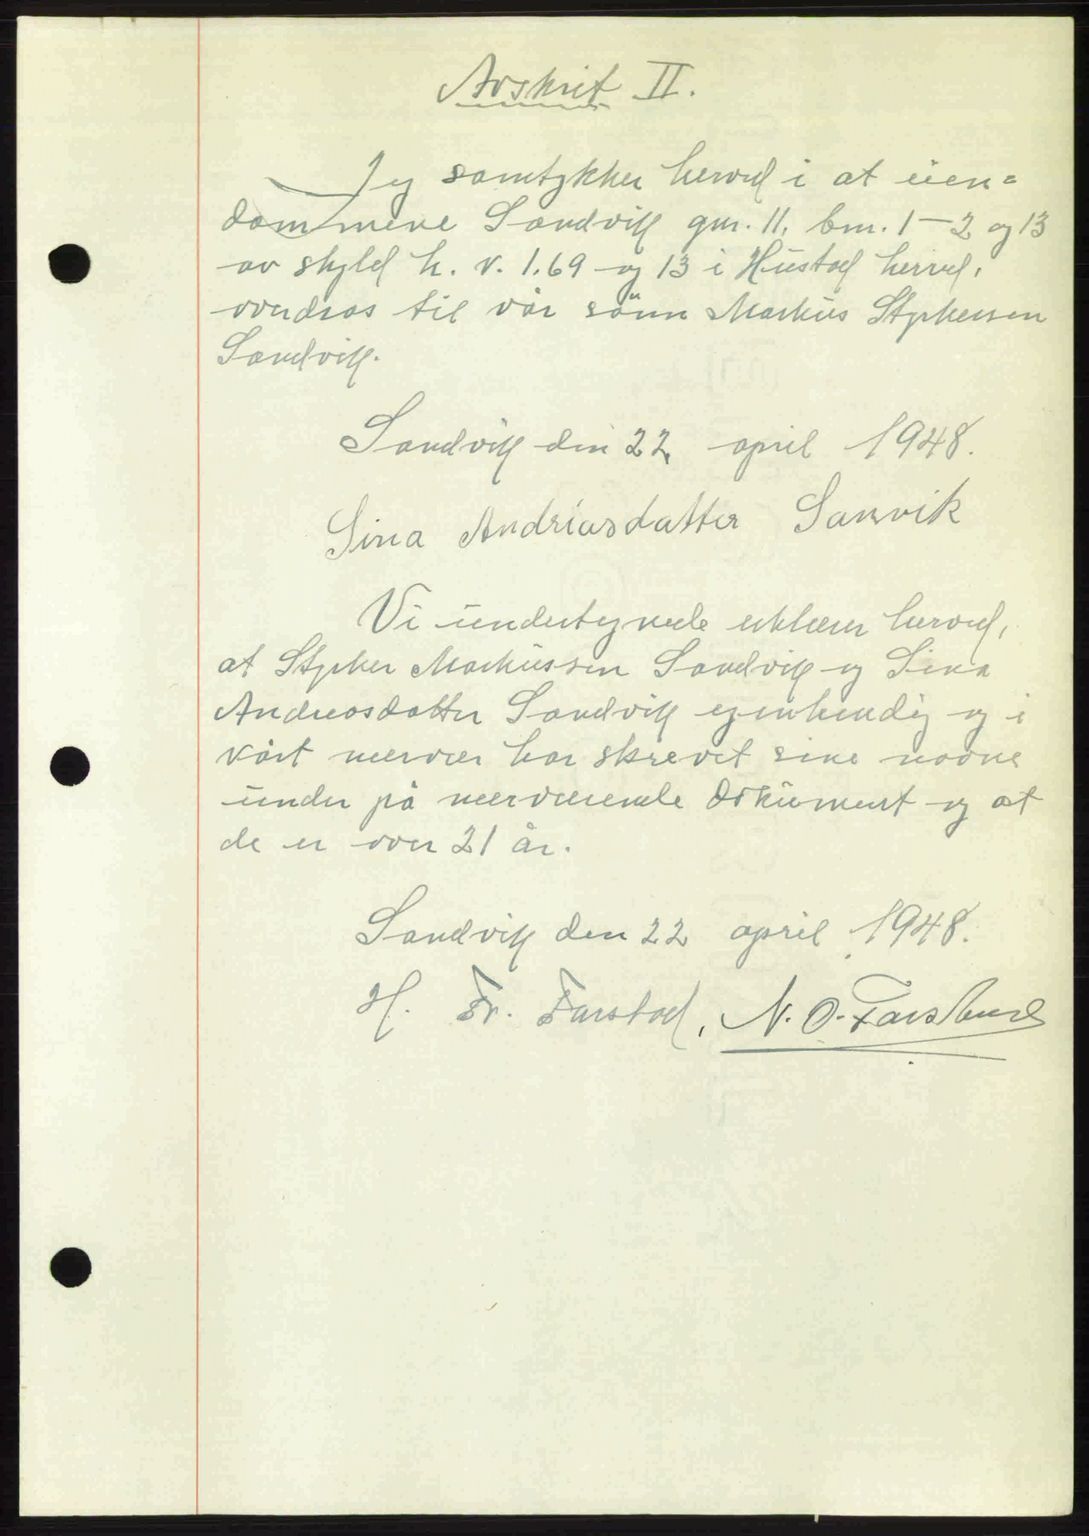 Avskrift II.
Jeg samtykker herved i at eien=
dommene Sandvik gnr. 11, bnr. 1-2 og 13
av skyld h. v. 1.69 og 13 i Hustad herred,
overdras til vår sönn Markus Styrkersen
Sandvik.
Sandvik den 22 april 1948.
Sina Andriasdatter Sanvik
Vi undertegnede erklærer herved,
at Styrker Markussen Sandvik og Sina
Andreasdatter Sandvik egenhendig og i
vårt nærvær har skrevet sine navne
under på nærværende dokument og at
de er over 21 år.
Sandvik den 22 april 1948.
H. Fr. Farstad, N. O. Farstad